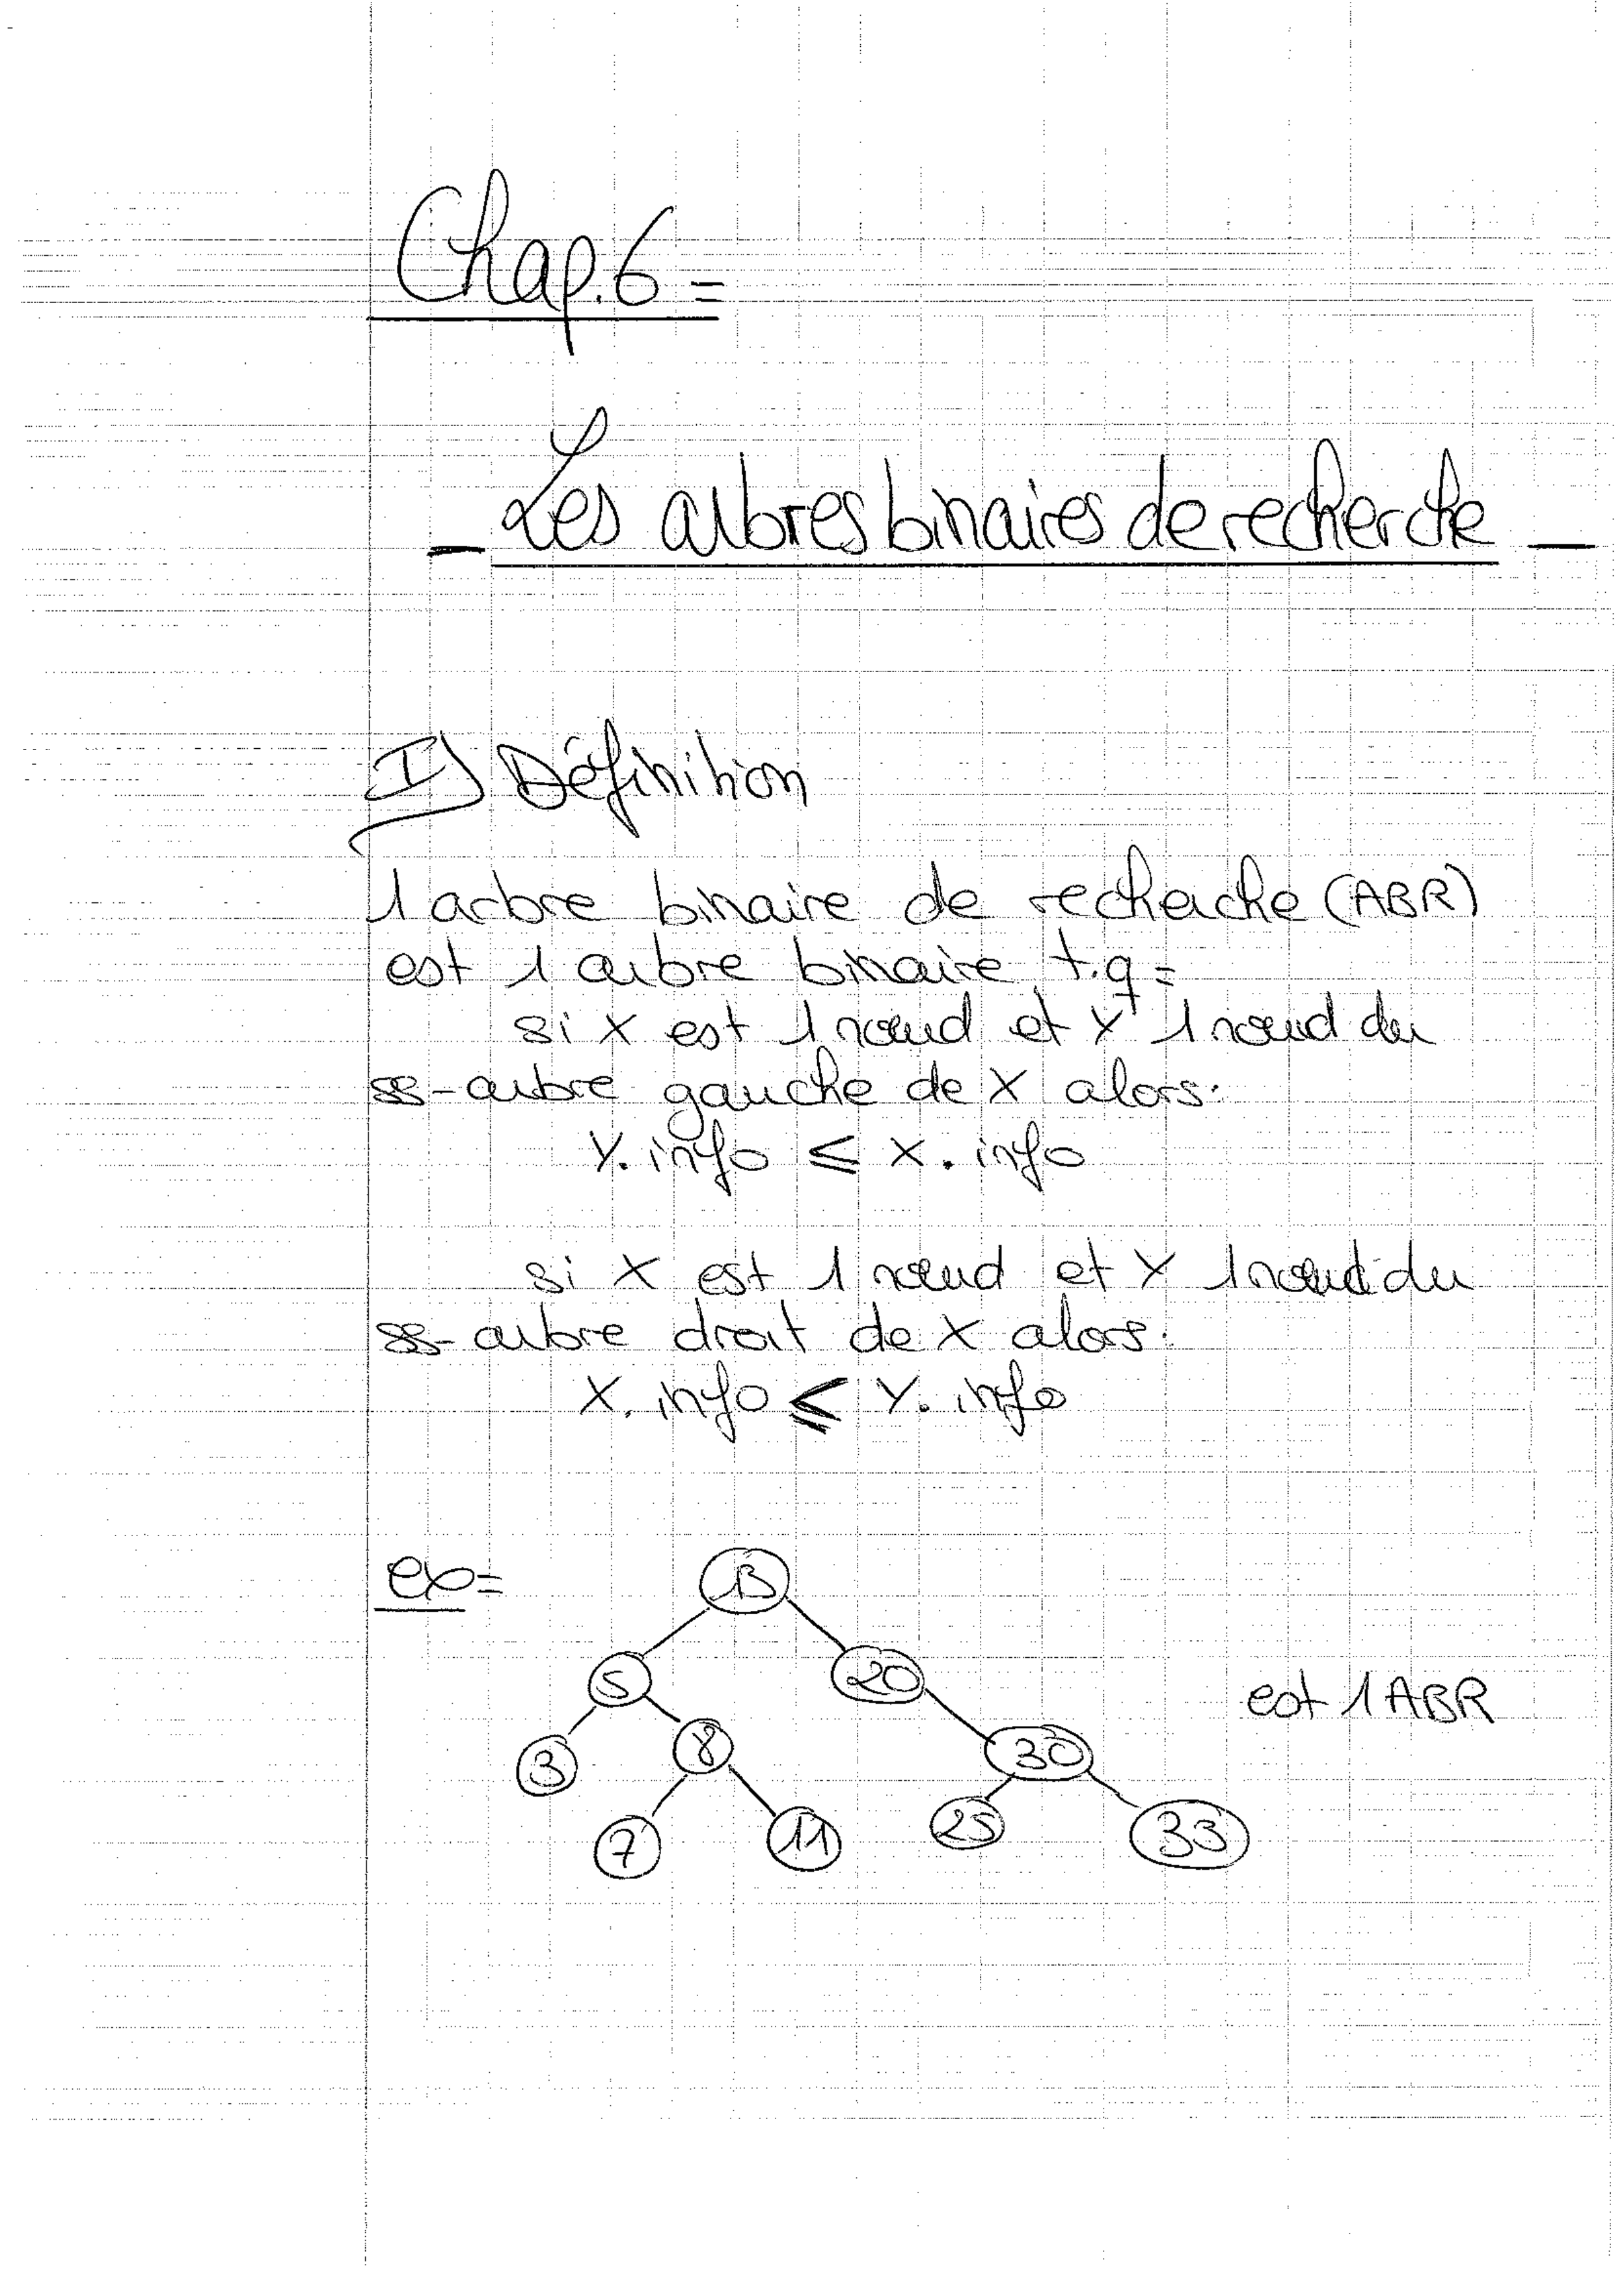 Chap.6 =
- Les arbres binaires de recherche -
I) Définition
1 arbre binaire de recherche (ABR)
est 1 arbre binaire t.q =
si X est 1 nœud et Y 1 nœud du
ss-arbre gauche de X alors :
Y.info ≤ X.info
si X est 1 nœud et Y 1 nœud du
ss-arbre droit de X alors :
X.info ≤ Y.info
ex =
13
5 20
est 1 ABR
3 8 30
7 11 25 33